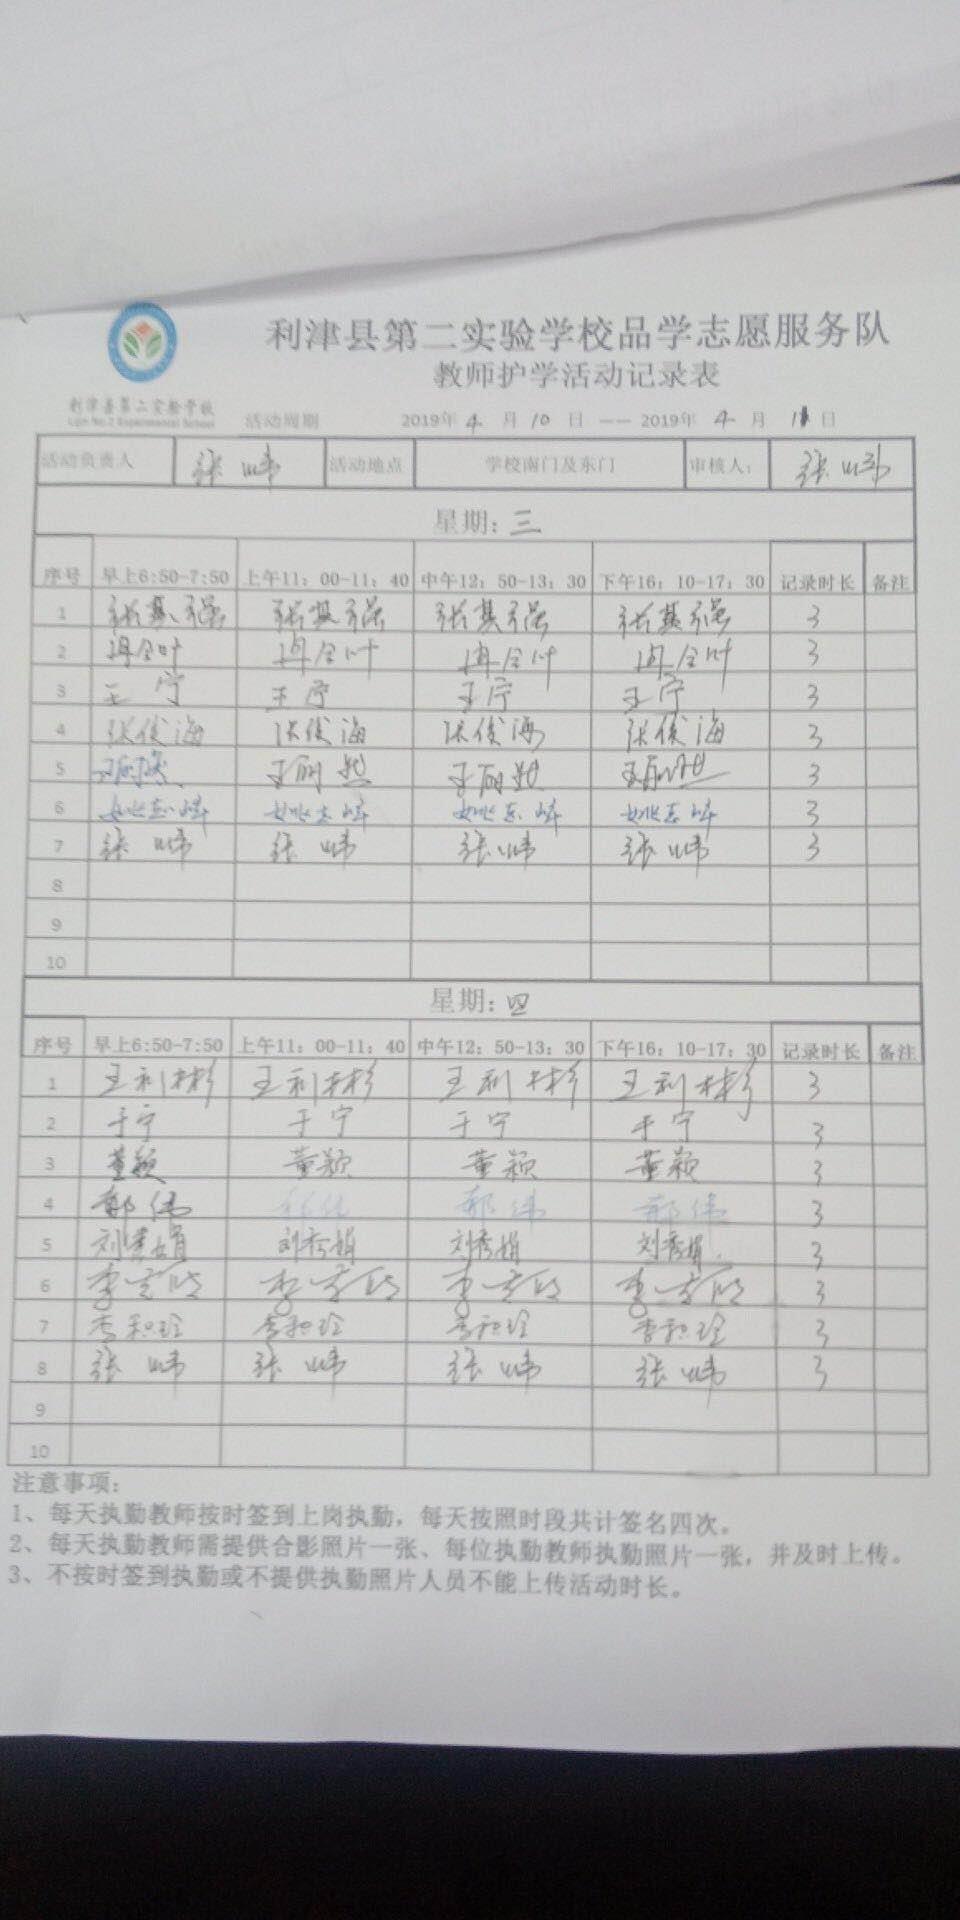 利津县第二实验学校品学志愿服务队
教师护学活动记录表
利津县第二实验学校
Lijin No.2 Experimental School
活动周期 2019年 4 月 10 日 —— 2019年 4 月 11 日
活动负责人 张 炜 活动地点 学校南门及东门 审核人： 张 炜
星期：三
序号 早上6:50-7:50 上午11：00-11：40 中午12：50-13：30 下午16：10-17：30 记录时长 备注
1 张其强 张其强 张其强 张其强 3
2 冉令叶 冉令叶 冉令叶 冉令叶 3
3 王宁 王宁 王宁 王宁 3
4 张俊海 张俊海 张俊海 张俊海 3
5 3
6 3
7 张 炜 张 炜 张 炜 张 炜 3
8
9
10
星期：四
序号 早上6:50-7:50 上午11：00-11：40 中午12：50-13：30 下午16：10-17：30 记录时长 备注
1 王利彬 王利彬 王利彬 王利彬 3
2 于宁 于宁 于宁 于宁 3
3 董颖 董颖 董颖 董颖 3
4 郝伟 郝伟 郝伟 3
5 刘秀娟 刘秀娟 刘秀娟 刘秀娟 3
6 3
7 3
8 张 炜 张 炜 张 炜 张 炜 3
9
10
注意事项：
1、每天执勤教师按时签到上岗执勤，每天按照时段共计签名四次。
2、每天执勤教师需提供合影照片一张、每位执勤教师执勤照片一张，并及时上传。
3、不按时签到执勤或不提供执勤照片人员不能上传活动时长。